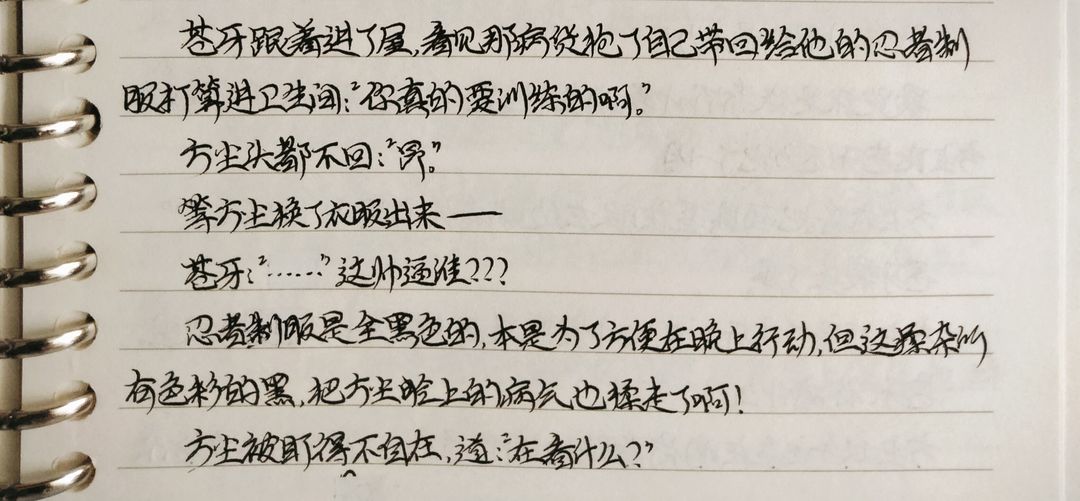 苍牙跟着进了屋,看见那病秧抱了自己带回给他的忍者制
服打算进卫生间:“你真的要训练的啊。”
方尘头都不回:“昂。”
等方尘换了衣服出来——
苍牙:“……”这帅逼谁???
忍者制服是全黑色的,本是为了方便在晚上行动,但这糅杂所
有色彩的黑,把方尘脸上的病气也揉走了啊!
方尘被盯得不自在,道:“在看什么?”